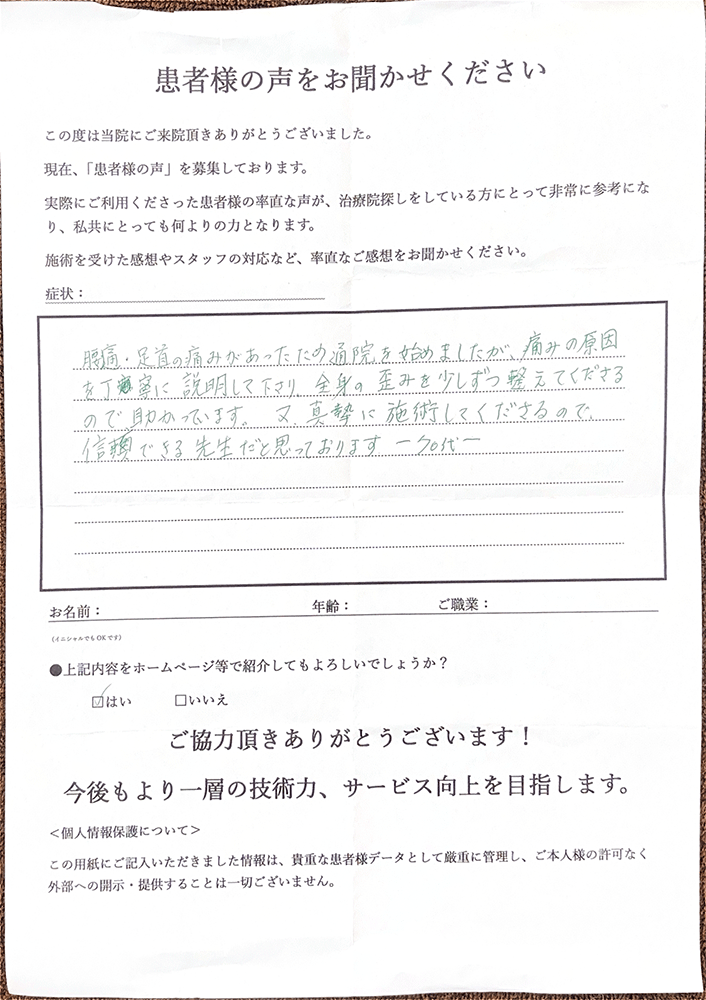 患者様の声をお聞かせください
この度は当院にご来院頂きありがとうございました。
現在、「患者様の声」を募集しております。
実際にご利用くださった患者様の率直な声が、治療院探しをしている方にとって非常に参考にな
り、私共にとっても何よりの力となります。
施術を受けた感想やスタッフの対応など、率直なご感想をお聞かせください。
症状：
腰痛・足首の痛みがあったため通院を始めましたが、痛みの原因
を丁寧に説明して下さり、全身の歪みを少しずつ整えてくださる
ので助かっています。又、真摯に施術してくださるので、
信頼できる先生だと思っております ー50代ー
お名前：　年齢：　ご職業：
（イニシャルでもOKです）
●上記内容をホームページ等で紹介してもよろしいでしょうか？
☑はい　□いいえ
ご協力頂きありがとうございます！
今後もより一層の技術力、サービス向上を目指します。
＜個人情報保護について＞
この用紙にご記入いただきました情報は、貴重な患者様データとして厳重に管理し、ご本人様の許可なく
外部への開示・提供することは一切ございません。